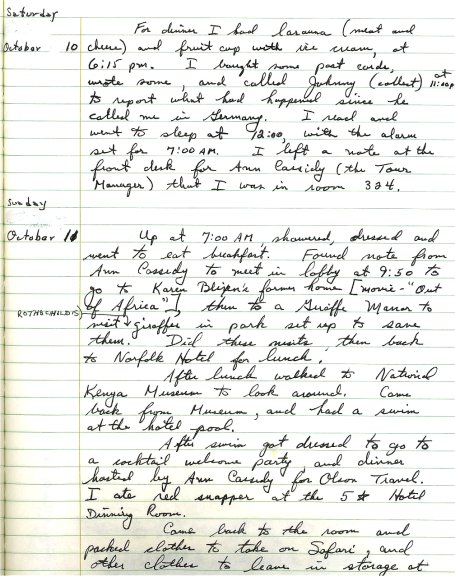 Saturday
For dinner I had lasauna (meat and
October 10 cheese) and fruit cup with ice cream, at
6:15 pm. I bought some post cards,
wrote some, and called Johnny (collect) at 11:00pm
to report what had happened since he
called me in Germany. I read and
went to sleep at 12:00, with the alarm
set for 7:00 AM. I left a note at the
front desk for Ann Cassidy (the Tour
Manager) that I was in room 324.
Sunday
October 11 Up at 7:00 AM showered, dressed and
went to eat breakfast. Found note from
Ann Cassedy to meet in lobby at 9:50 to
go to Karen Blixen's former home [movie - "Out
of Africa"], then to a Giraffe Manor to
ROTHSCHILD'S) visit giraffes in park set up to save
them. Did these visits, then back
to Norfolk Hotel for lunch.
After lunch walked to National
Kenya Museum to look around. Came
back from Museum, and had a swim
at the hotel pool.
After swim got dressed to go to
a cocktail welcome party and dinner
hosted by Ann Cassidy for Olson Travel.
I ate red snapper at the 5 ☆ Hotel
Dinning Room.
Came back to the room and
packed clothes to take on Safari, and
other clothes to leave in storage at